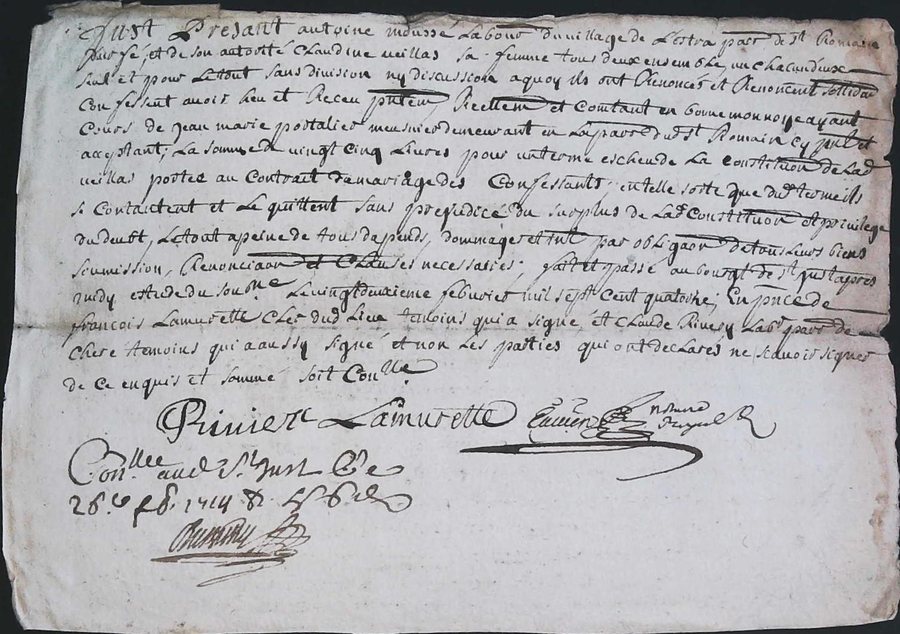 fust Presant antoine mousse Labour du village de Lestra parr de st Romain
par sé et de son autorité Claudine veillas sa femme tous deux ensemble un chacun deux
seul et pour Le tout sans division ny discussion a quoy ils ont Renoncés et Renoncent sollider
Confessent avoir heu et Receu pntem Reellem et Contant en bonne monnoye ayant
Cours de Jean marie postalier meusnier demeurant en La parr dud st Romain cy pnt et
acceptant, La somme de vingt cinq Livres pour un terme escheu de La constitution de Lad
veillas portee au Contrait de mariage des Confessants; en telle sorte que dud terme ils
se Contactent et Le quittent sans prejudice du surplus de Lad Constitution et privilege
du deubt, Le tout a peine de tous depends, dommages et int par obligaon de tous Leurs biens
soumission, Renonciaon et Clauses necessaires; fait et passé au bourgt de st just apres
midy estude du soubne Le vingt deuxieme febvrier mil sept cent quatorze; En pnce de
françois Lamurette Cler dud Lieu temoins qui a signé, et Claude Rivery Labr parr de
Chere temoins qui a aussy signé et non Les parties qui ont declarés ne scavoir signer
de ce enquis et sommé soit Conlle
Lamurette
Conllee aud St Just Ce
26.e fb. 1714 &